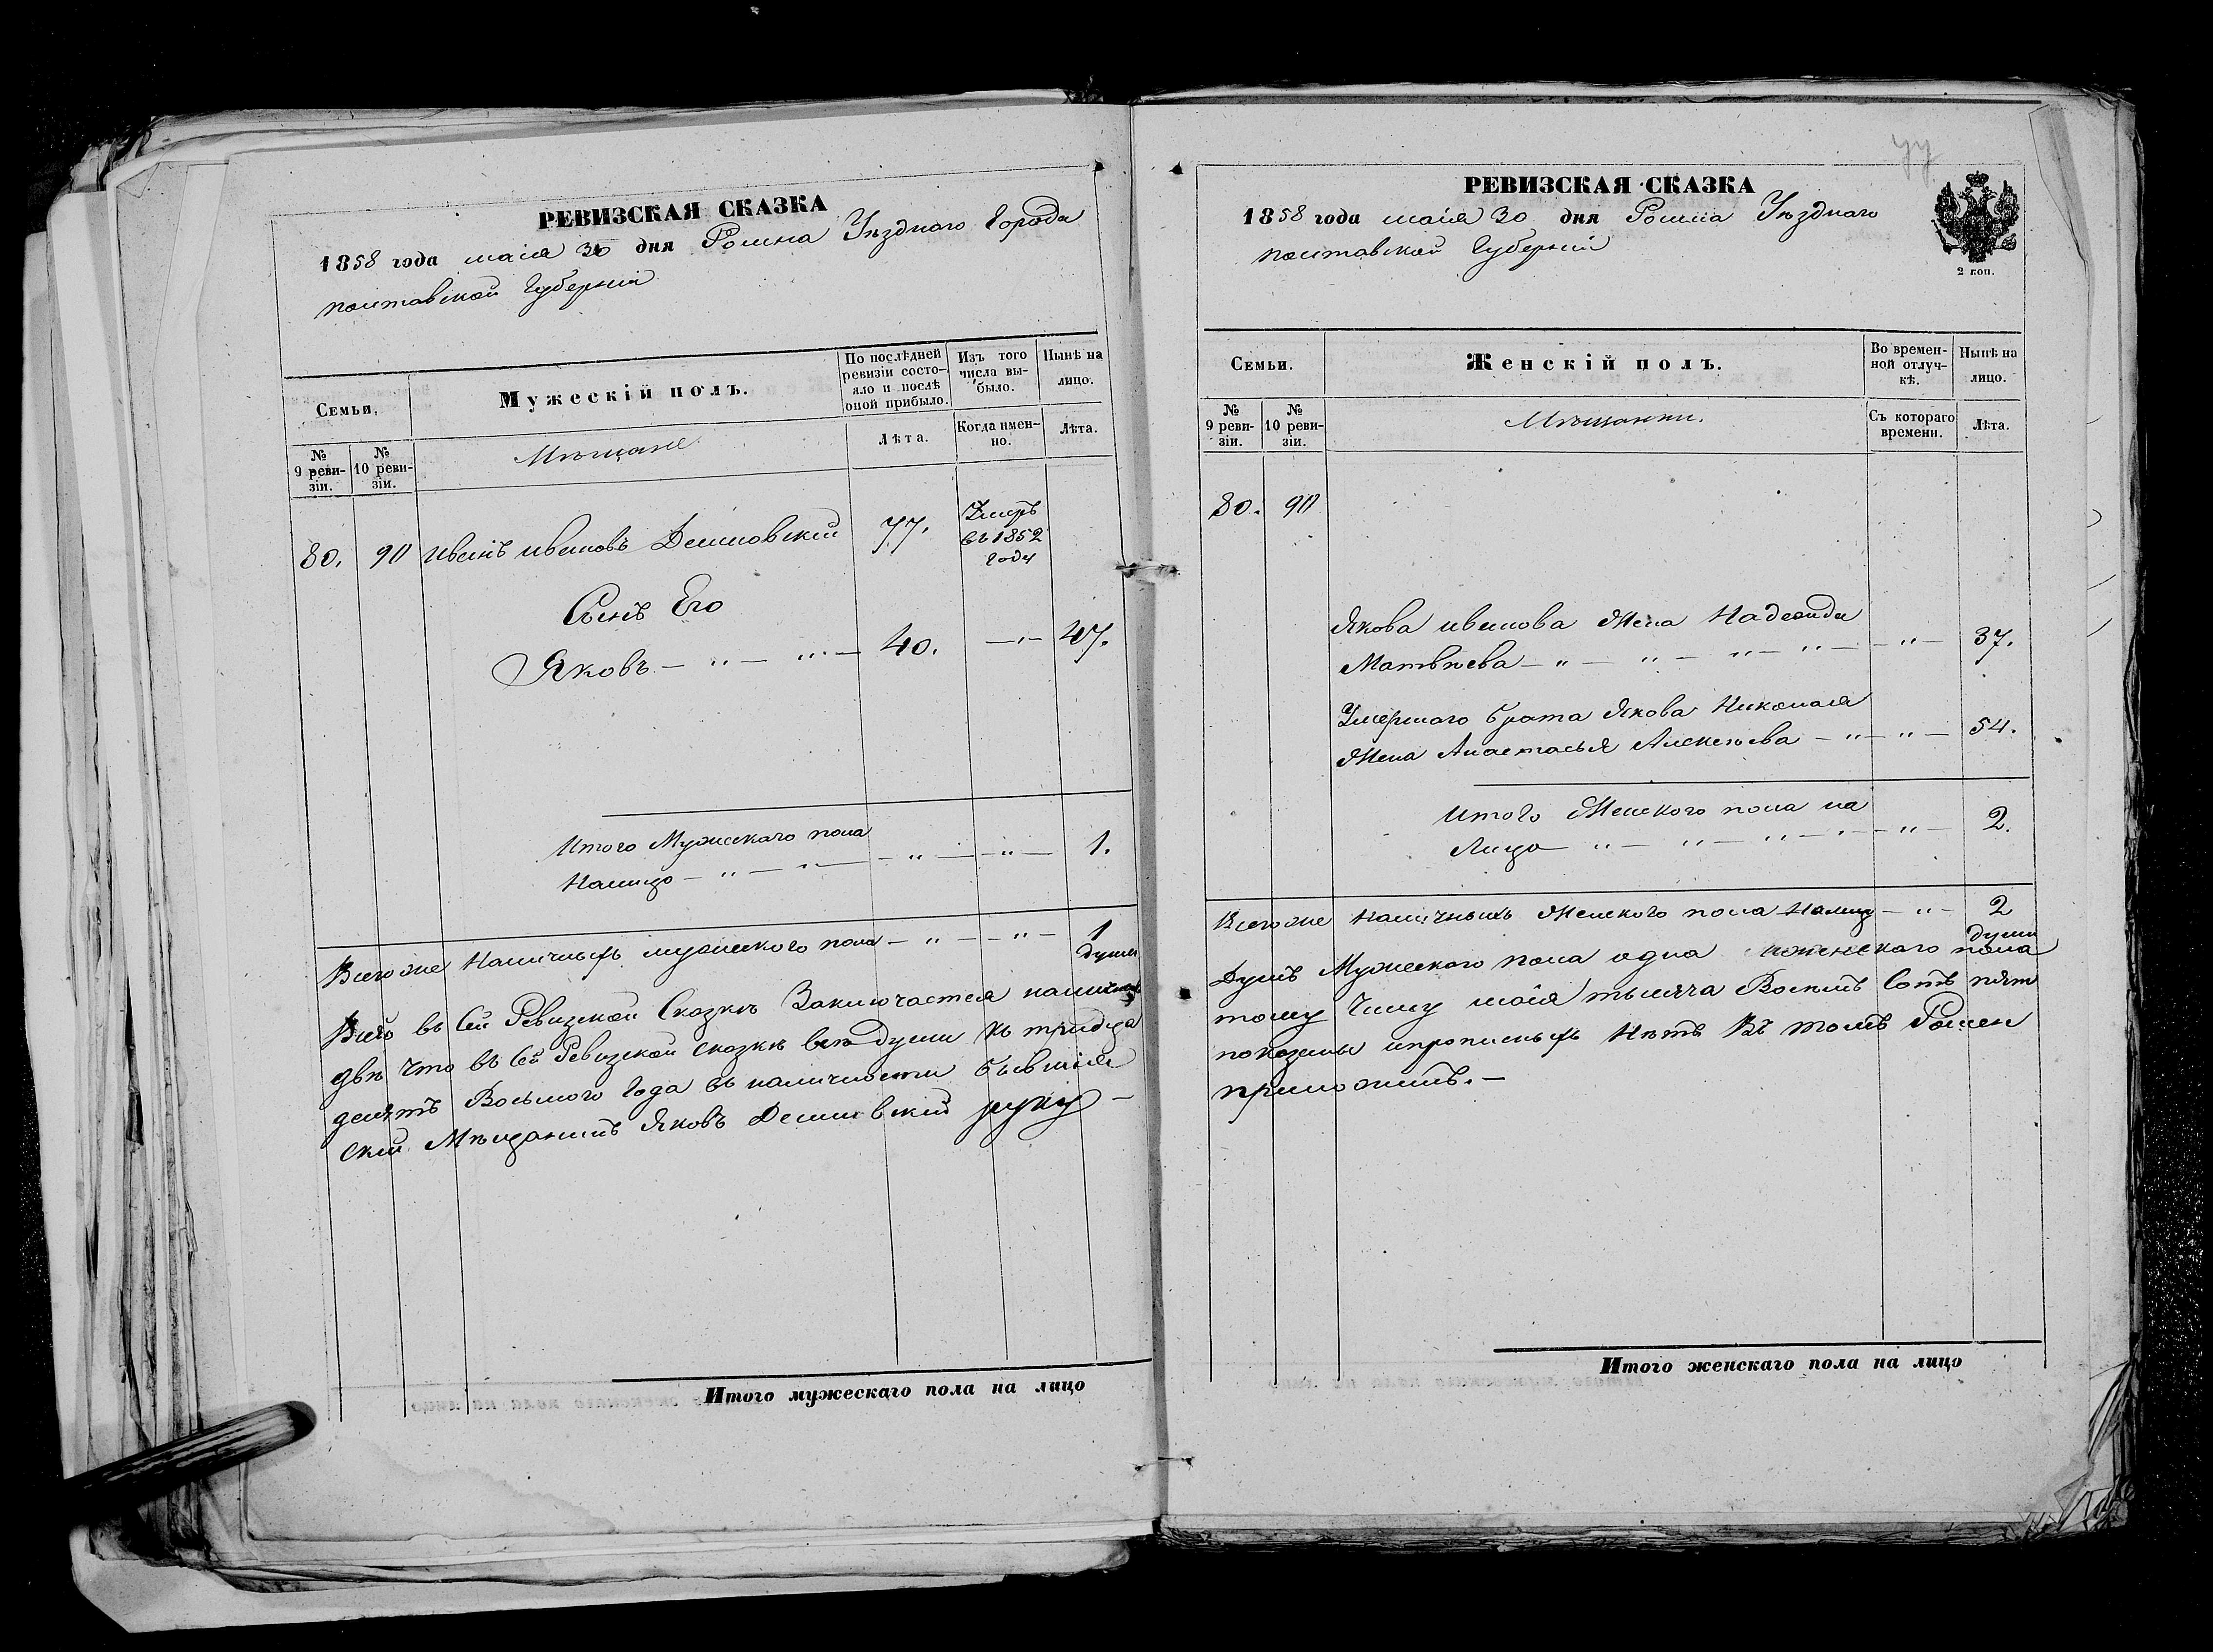 РЕВИЗСКАЯ СКАЗКА
1858 года маія 30 дня Ромна Уѣзднаго Города
полтавской Губерніи
Семьи,
Мужескій полъ.
По послѣдней ревизіи состояло и послѣ оной прибыло.
Изъ того числа выбыло.
Нынѣ на лицо.
№ 9 ревизіи.
№ 10 ревизіи.
Мѣщане
Лѣта.
Когда именно.
Лѣта.
80. 90 Иванъ ивановъ Демиовский 77. Умеръ въ 1852 году
Сынъ Его
Яковъ — " — " — 40. — " — 47.
Итого Мужескаго пола
Налицо — " — " — " — " — 1.
Всего же Наличныхъ мужескаго пола — " — " — 1 души
Всего въ Сей Ревизской Сказкѣ Заключается наличныхъ
двѣ Что въ Сей Ревизской сказкѣ всѣ души къ тридца
десятъ Восьмого Года въ наличности бывшія
ский Мѣщанинъ Яковъ руку —
Итого мужескаго пола на лицо
уу
РЕВИЗСКАЯ СКАЗКА
1858 года маія 30 дня Ромна Уѣзднаго
полтавской Губерніи
2 коп.
Семьи.
Женскій полъ.
Во временной отлучкѣ.
Нынѣ на лицо.
№ 9 ревизіи.
№ 10 ревизіи.
Мѣщанки.
Съ котораго времени.
Лѣта.
80. 90
Якова иванова Жена Надежда
Матвѣева — " — " — " — " — " — 37.
Умершаго брата Якова Николая
Жена Анастасья Алексѣева — " — " — 54.
Итого Женскаго пола на
Лицо — " — " — " — " — " — 2.
Всего же Наличныхъ Женскаго пола Налицо — " — 2 души
Душъ Мужескаго пола одна иженскаго пола
тому Числу маія тысяча Восемь Сотъ пят
показаны ипрописныхъ Нѣтъ Въ томъ Ромен
приложилъ. —
Итого женскаго пола на лицо